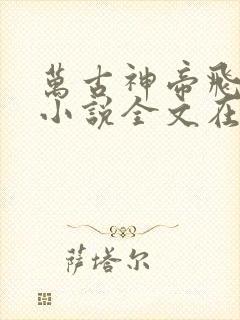 萬古神帝飛
小說全文在
萨塔尔